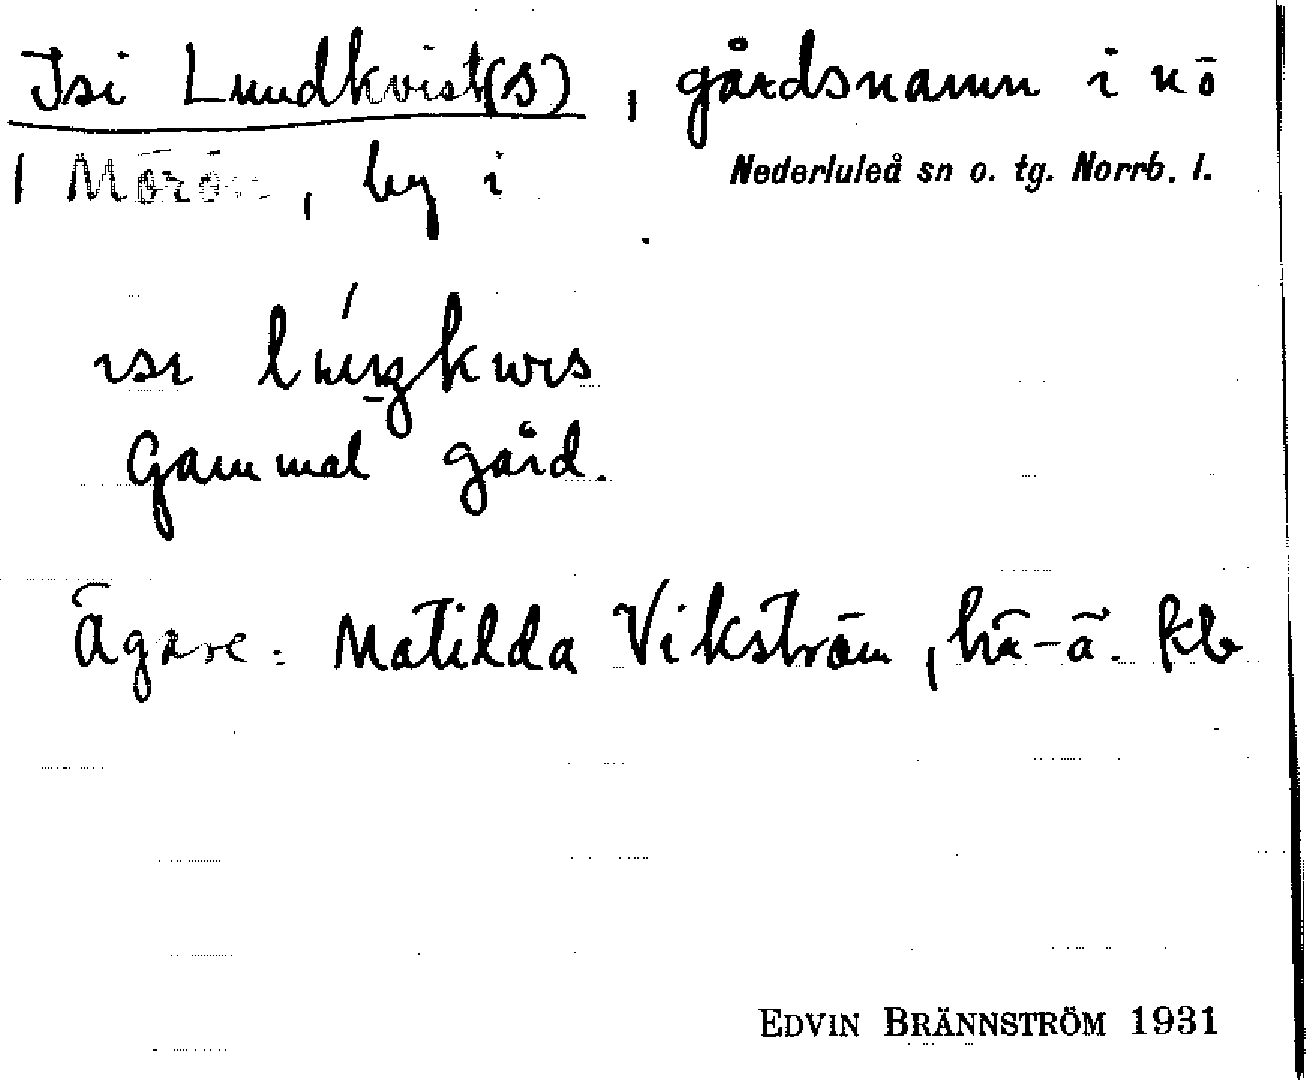 Isi Lundkvist(s), gårdsnamn i nö
| Mörön, by i Nederluleå sn o. tg. Norrb. l.
Gammal gård.
Ägare: Matilda Vikström, hä-ä. Rb
EDVIN BRÄNNSTRÖM 1931